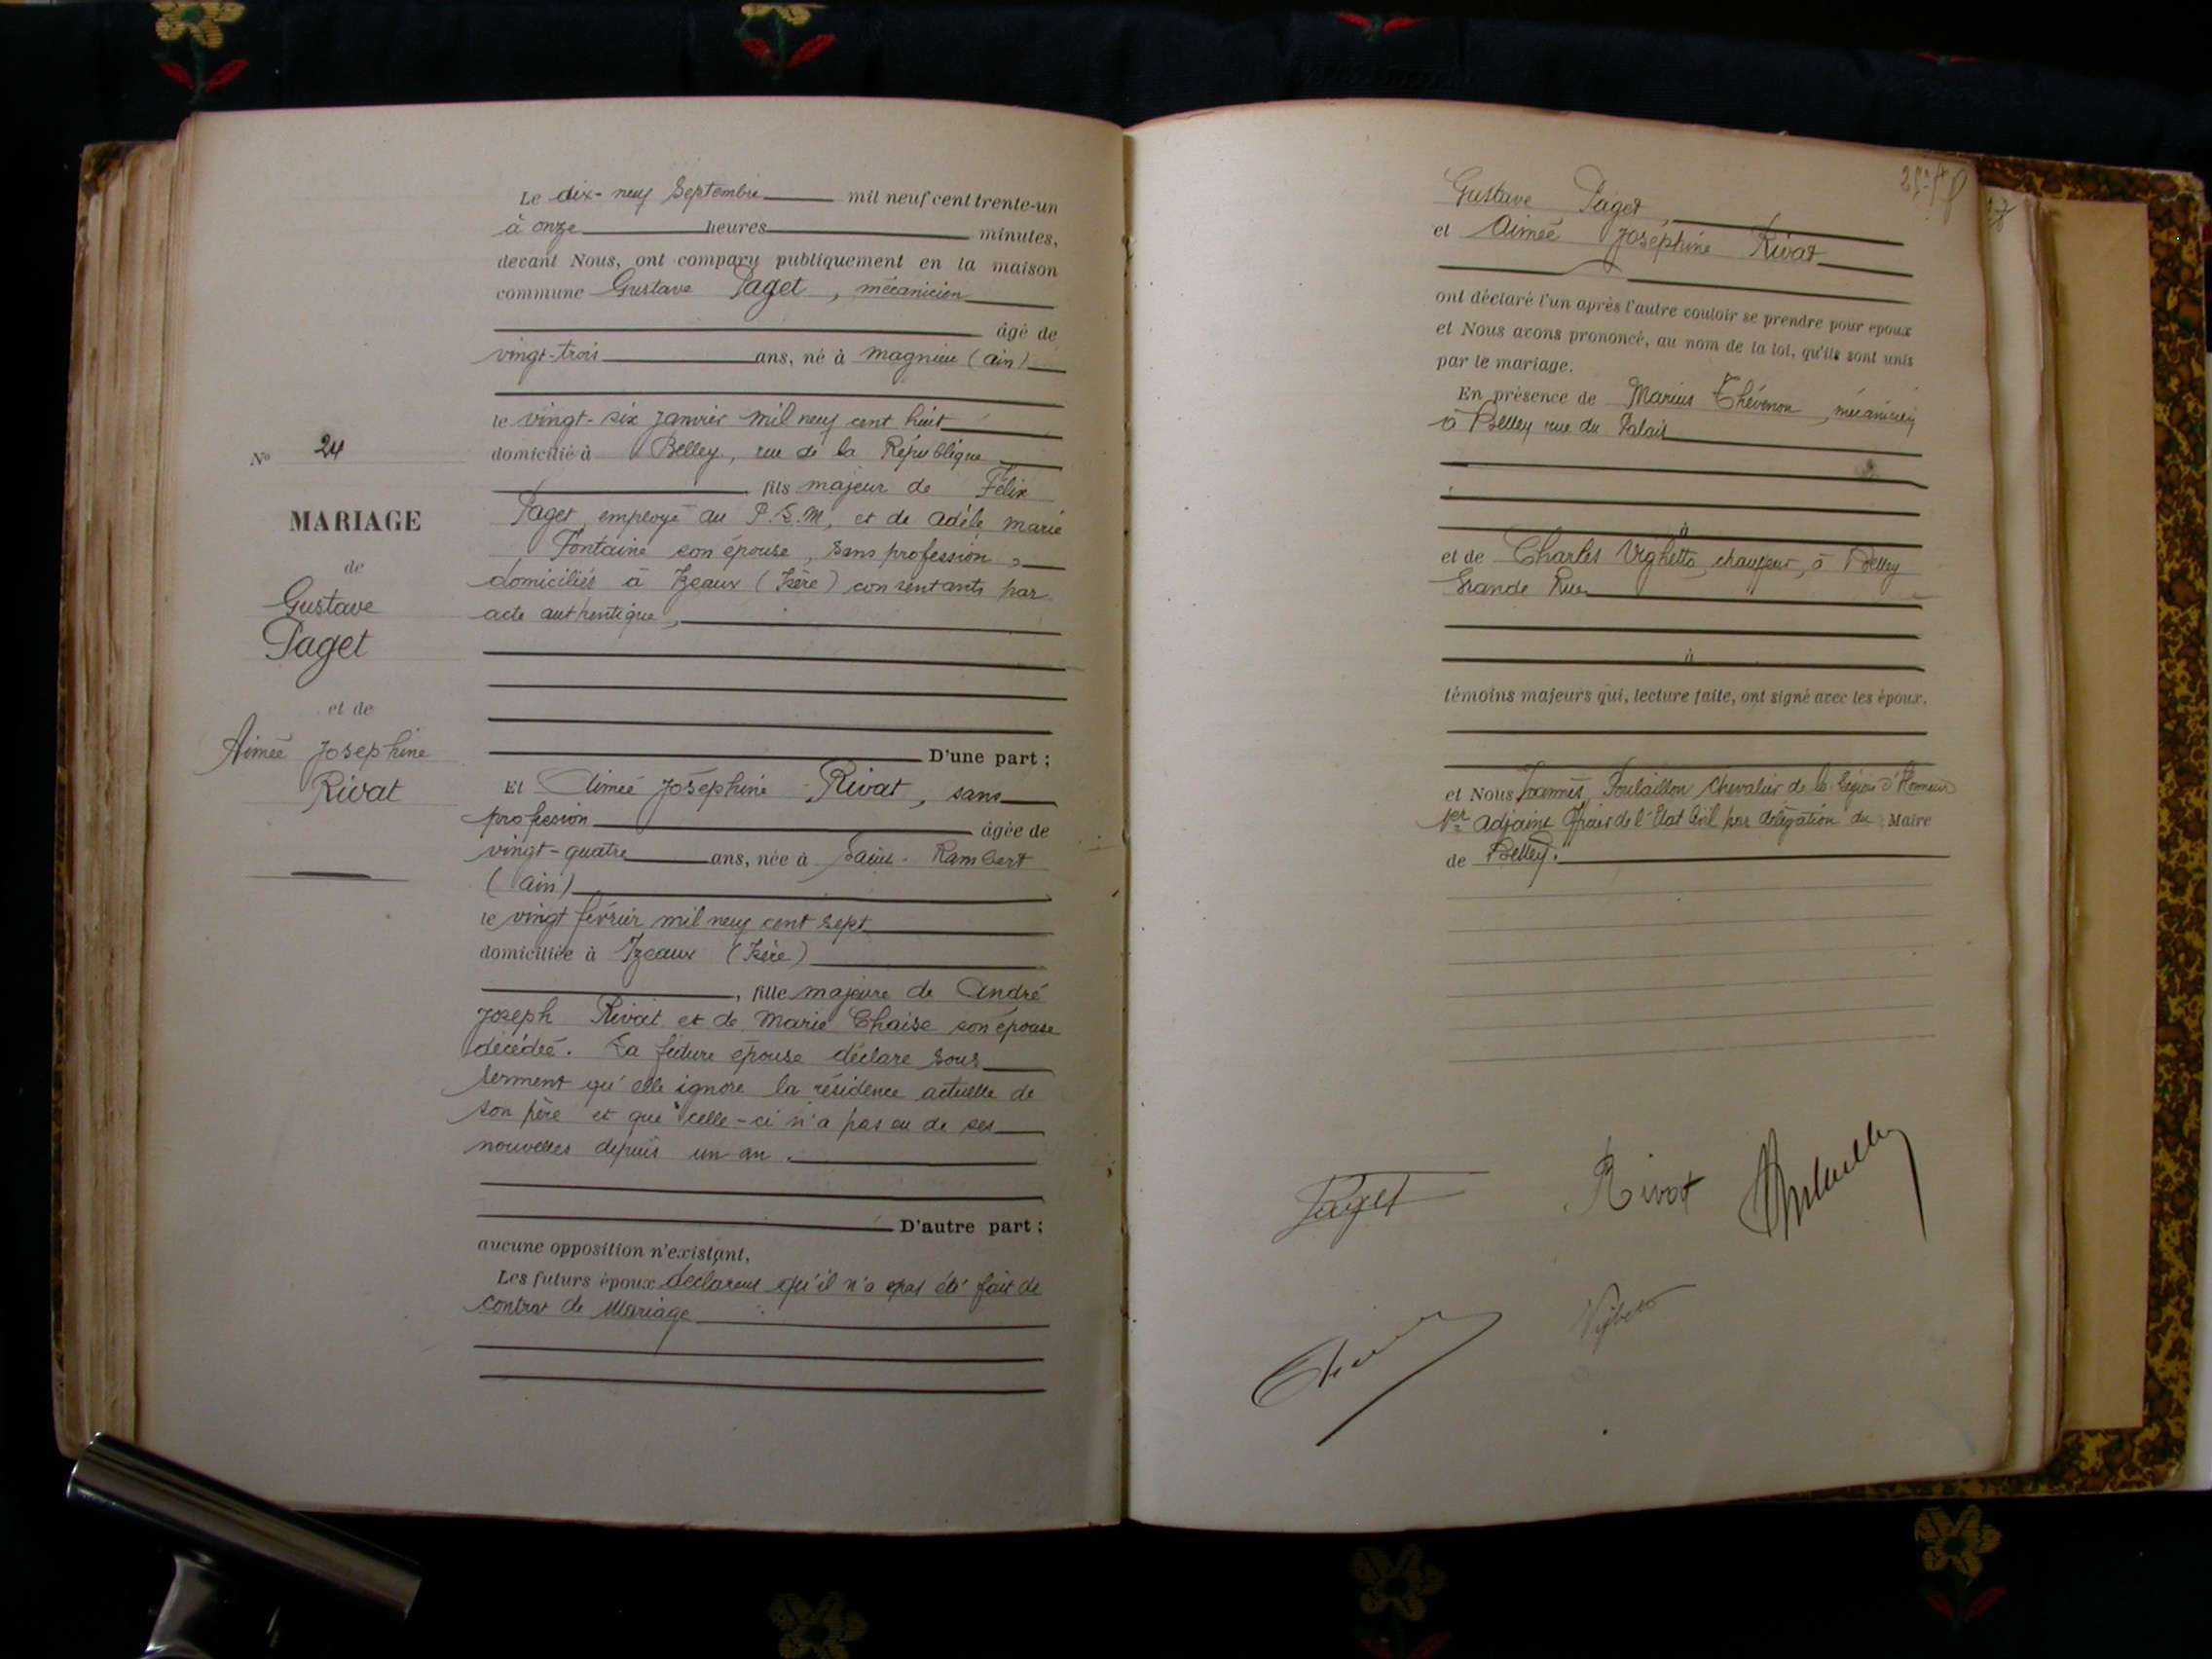 Le dix-neuf Septembre mil neuf cent trente-un
à onze heures minutes,
devant Nous, ont comparu publiquement en la maison
commune Gustave Paget, mécanicien
âgé de
vingt-trois ans, né à Magnieu (Ain)
le vingt-six Janvier mil neuf cent huit
domicilié à Belley, rue de la République
, fils majeur de Félix
Paget employé au P.L.M, et de Adèle Marie
Fontaine son épouse, sans profession,
domiciliés à Izeaux (Isère) consentants par
acte authentique,
D'une part ;
Et Aimée Joséphine Rivat, sans
profession âgée de
vingt-quatre ans, née à Saint-Rambert
(Ain)
le vingt février mil neuf cent sept
domiciliée à Izeaux (Isère)
, fille majeure de André
Joseph Rivat et de Marie Chaise son épouse
décédée. La future épouse déclare sous
serment qu'elle ignore la résidence actuelle de
son père et que celle-ci n'a pas eu de ses
nouvelles depuis un an.
D'autre part ;
aucune opposition n'existant,
Les futurs époux déclarent qu'il n'a pas été fait de
contrat de Mariage
No 24
MARIAGE
de
Gustave
Paget
et de
Aimée Joséphine
Rivat
Gustave Paget,
et Aimée Joséphine Rivat
ont déclaré l'un après l'autre vouloir se prendre pour époux
et Nous avons prononcé, au nom de la loi, qu'ils sont unis
par le mariage.
En présence de Marius Thévenon, mécanicien
à Belley rue du Palais
à
et de Charles Vighetto, chauffeur, à Belley
Grande Rue
à
témoins majeurs qui, lecture faite, ont signé avec les époux.
et Nous Joannès Poulaillon Chevalier de la Légion d'Honneur
1er Adjoint Officier de l'Etat Civil par délégation du Maire
de Belley.
Paget Rivat
Vighetto